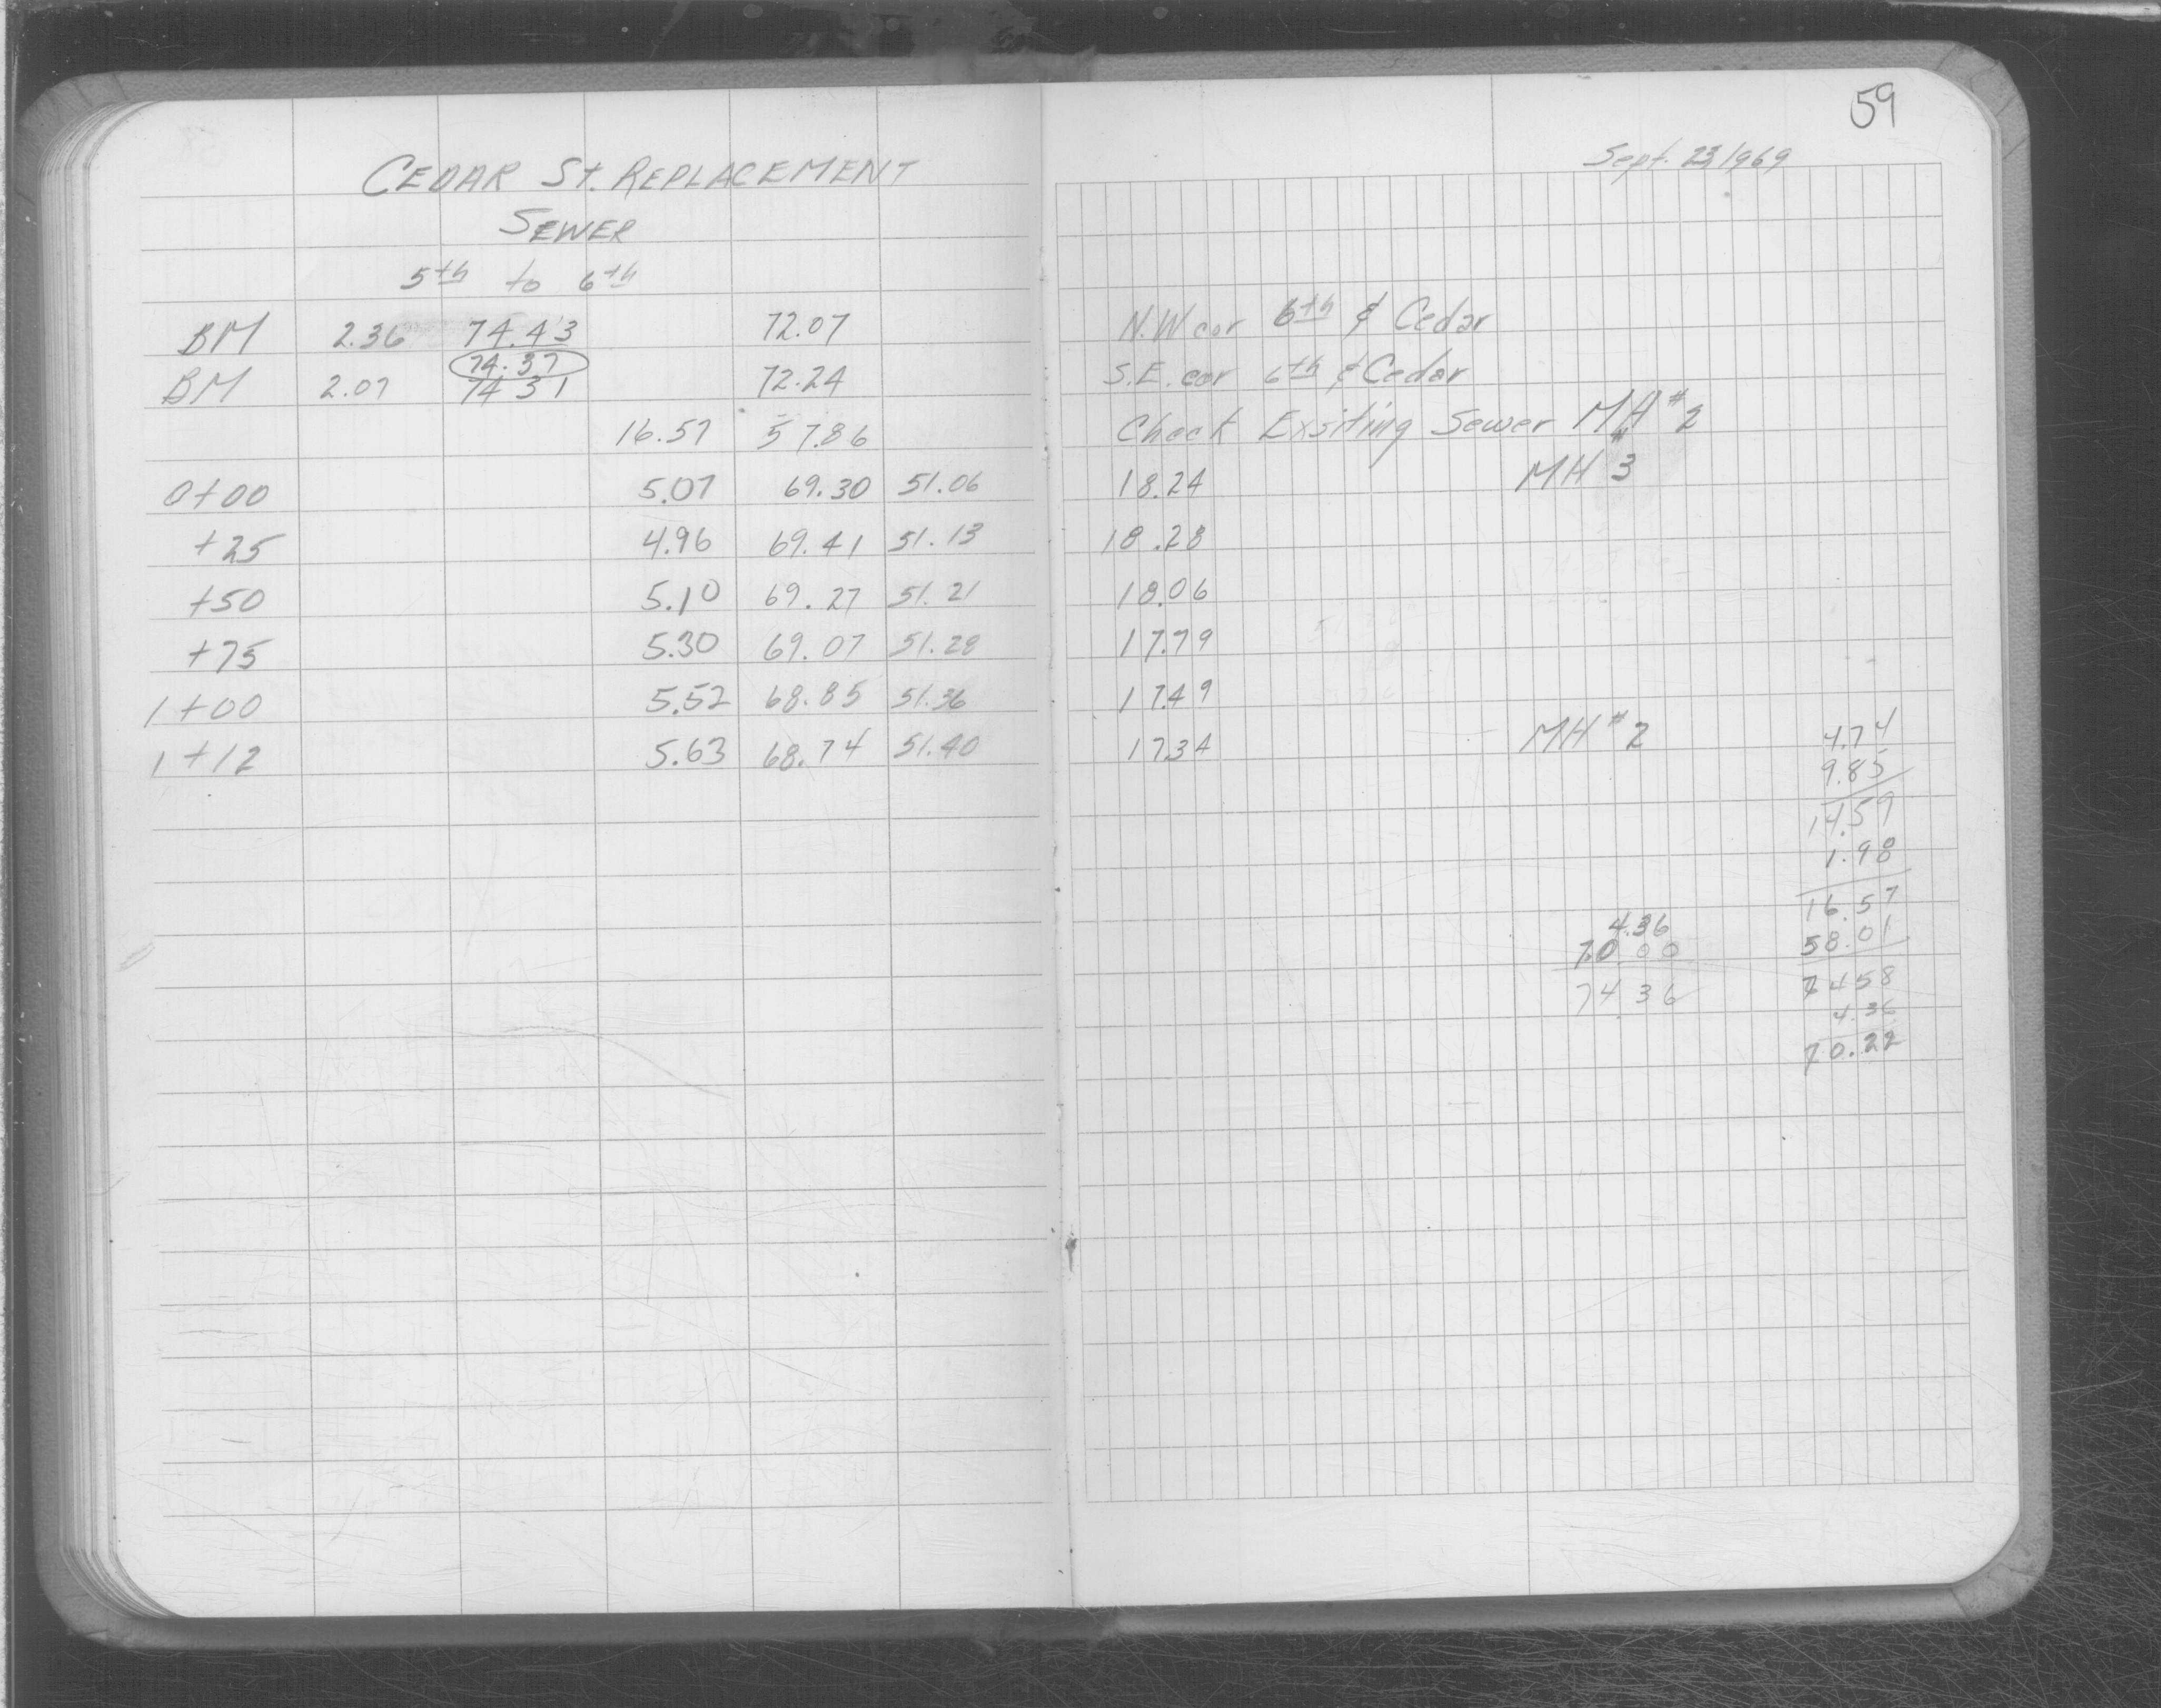 CEDAR St. REPLACEMENT
SEWER
5th to 6th
BM 2.36 74.43 72.07
74.37
BM 2.07 74 31 72.24
16.57 57.86
0+00 5.07 69.30 51.06
+25 4.96 69.41 51.13
+50 5.10 69.27 51.21
+75 5.30 69.07 51.28
1+00 5.52 68.85 51.36
1+12 5.63 68.74 51.40
59
Sept. 23 1969
N.W cor 6th & Cedar
S.E. cor 6th & Cedar
Check Exsiting Sewer MH #2
18.24 MH #3
18.28
18.06
17.79
17.49
17.34 MH #2
4.74
9.85
14.59
1.98
16.57
58.01
74 58
4.36
70.22
4.36
70.00
74 36